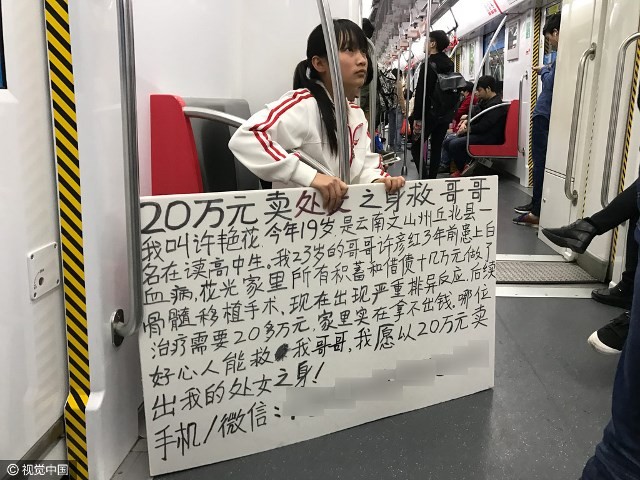 20万元卖处女之身救哥哥
我叫许艳花今年19岁是云南文山州丘北县一
名在读高中生,我23岁的哥哥许彦红3年前患上白
血病,花光家里所有积蓄和借债十几万元做了
骨髓移植手术,现在出现严重排异反应,后续
治疗需要20多万元,家里实在拿不出钱.哪位
好心人能救我哥哥,我愿以20万元卖
出我的处女之身!
手机/微信:
©视觉中国